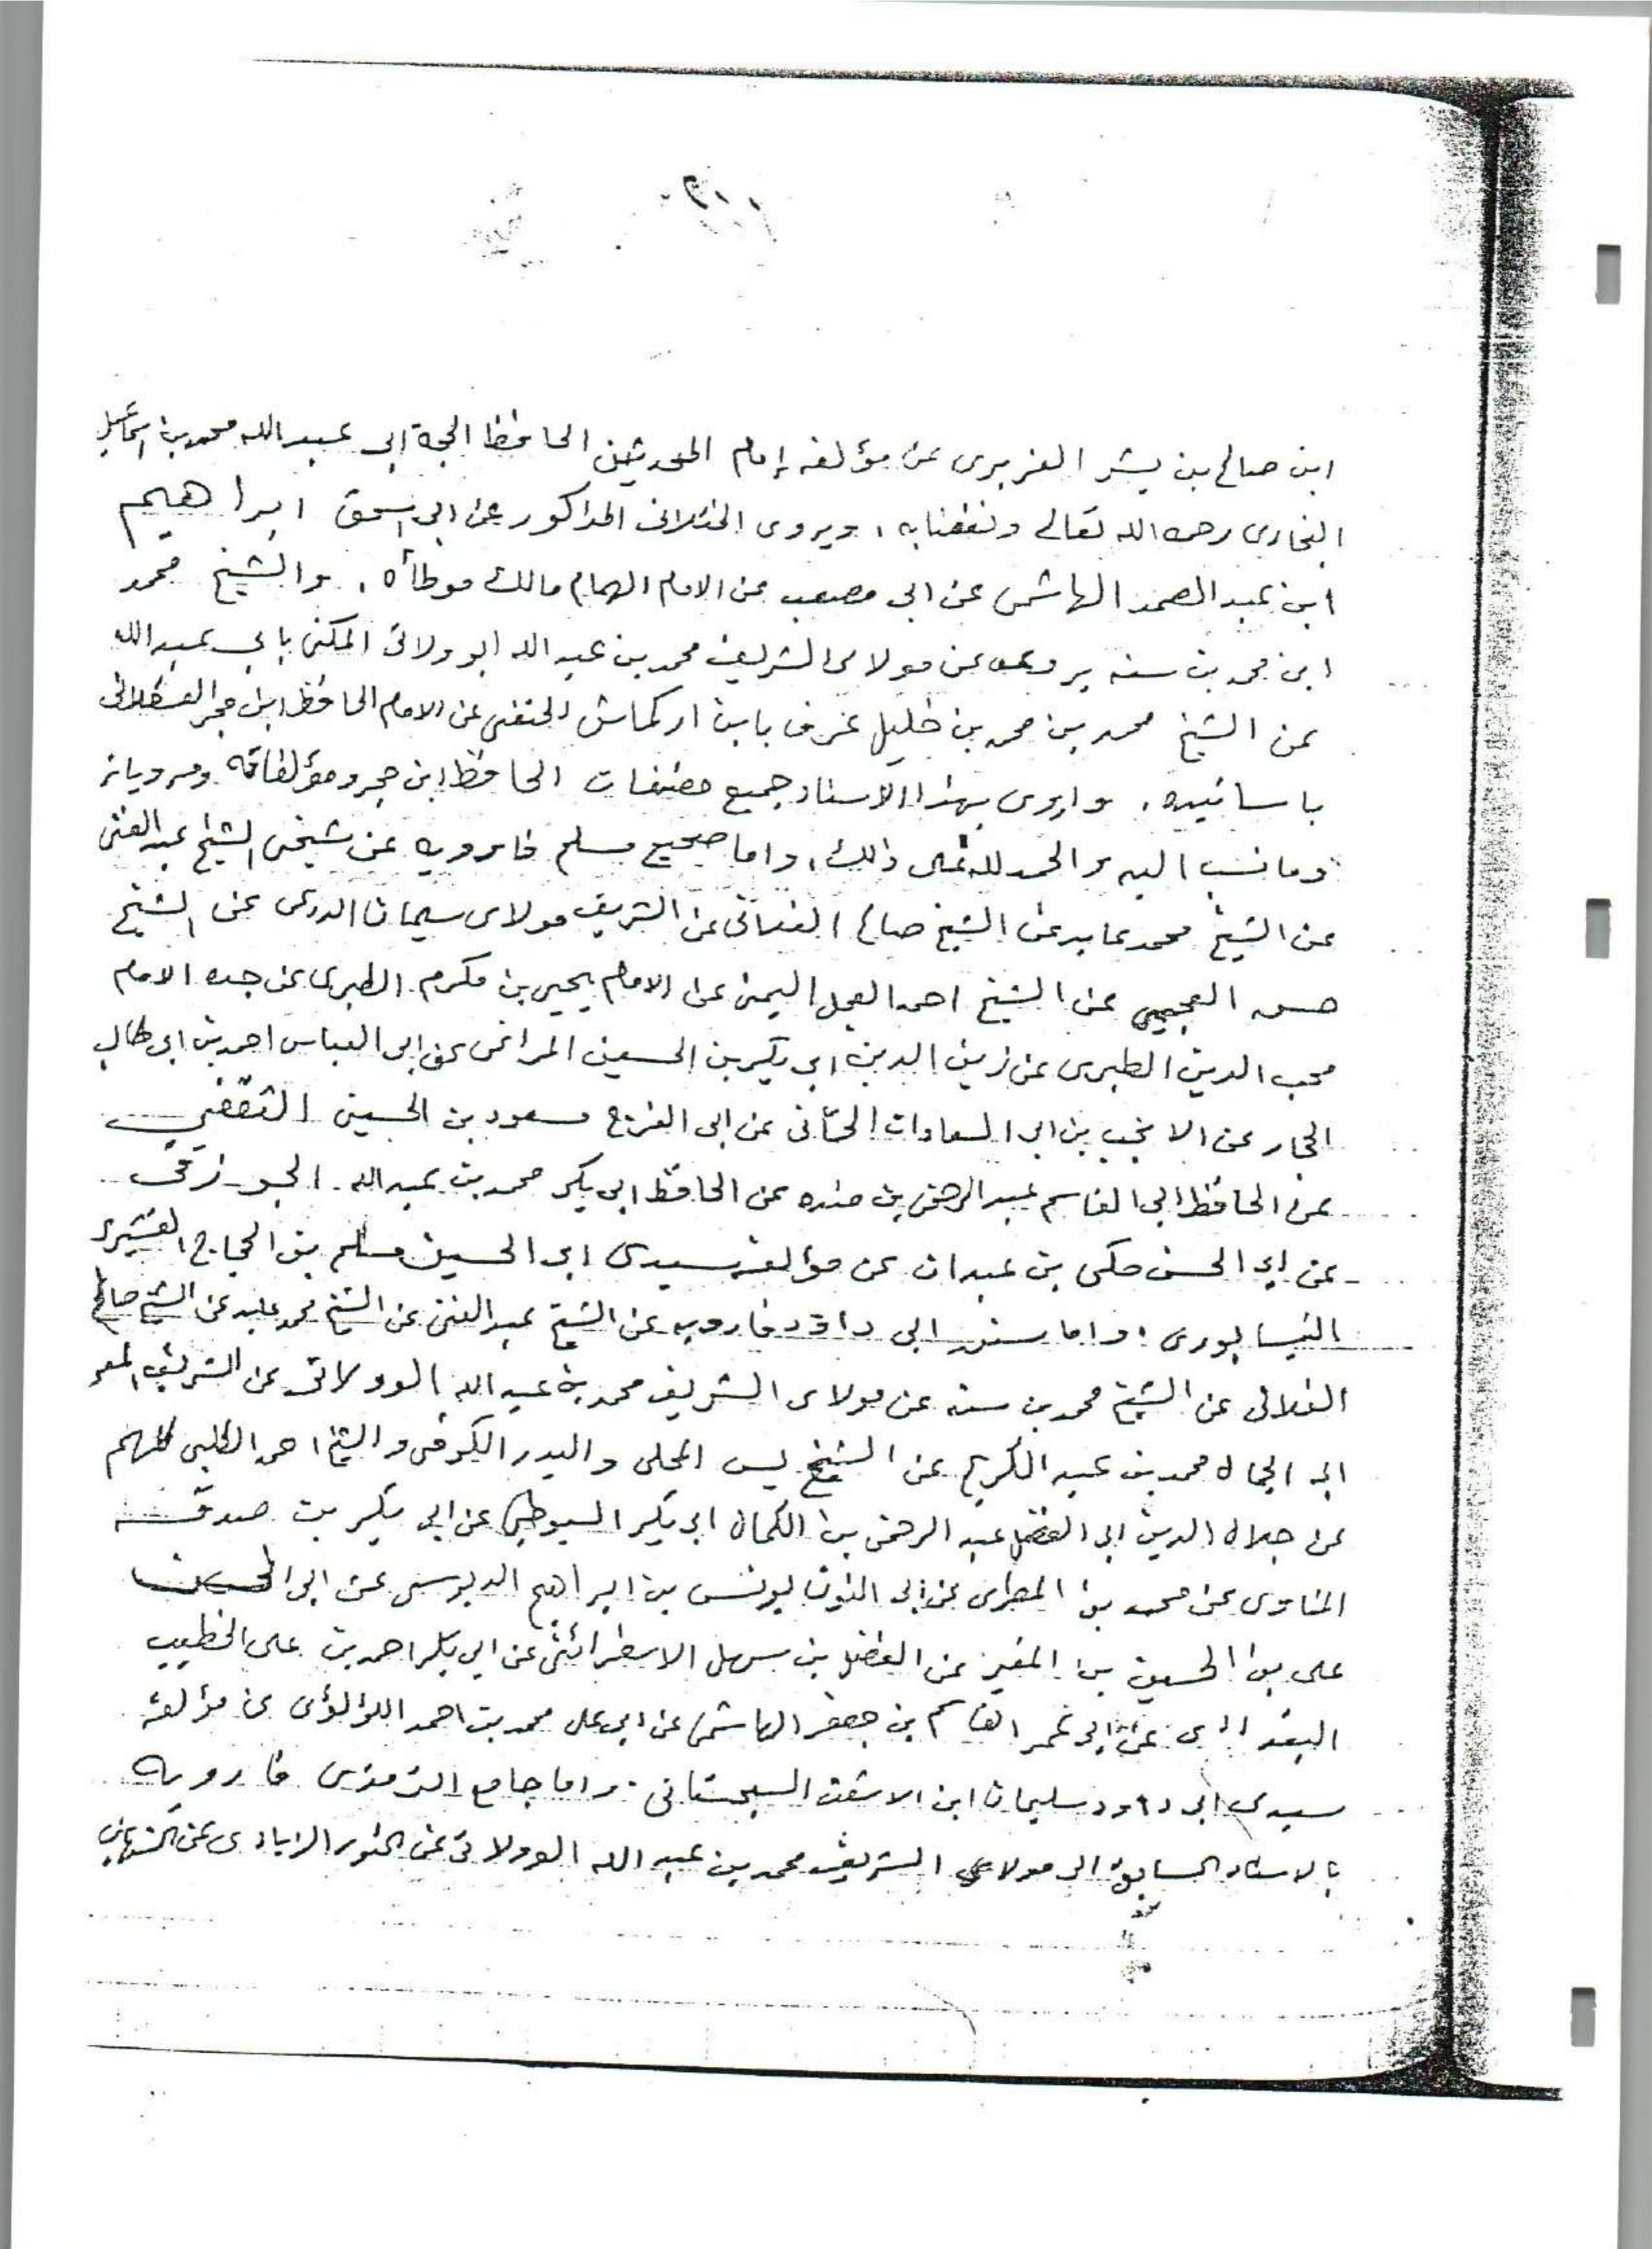 ابن صالح بن بشر الفربرى عن مؤلفه إمام المحدثين الحافظ الحجة ابى عبد الله محمد بن اسماعيل
البخارى رحمه الله تعالى ونفعنا به ، ويروى الختلانى المذكور عن ابى اسحق ابراهيم
ابن عبد الصمد الهاشمى عن ابى مصعب عن الامام الهمام مالك موطأه ، والشيخ محمد
ابن محمد بن سنه يروى عن مولاى الشريف محمد بن عبد الله الوولاتى المكنى بابى عبد الله
عن الشيخ محمد بن محمد بن خليل عرف بابن اركماش الحنفى عن الامام الحافظ ابن حجر العسقلانى
باسانيده ، واروى بهذا الاسناد جميع مصنفات الحافظ ابن حجر ومؤلفاته ومروياته
وما نسب اليه والحمد لله على ذلك ، واما صحيح مسلم فارويه عن شيخى الشيخ عبد الغنى
عن الشيخ محمد عابد عن الشيخ صالح الفلانى عن الشريف مولاى سليمان الدرعى عن الشيخ
حسن العجيمى عن الشيخ احمد العجل اليمنى عن الامام يحيى بن مكرم الطبرى عن جده الامام
محب الدين الطبرى عن زين الدين ابى بكر بن الحسين المراغى عن ابى العباس احمد بن ابى طالب
الحجار عن الانجب بن ابى السعادات الحمّانى عن ابى الفرج مسعود بن الحسين الثقفي
عن الحافظ ابى القاسم عبد الرحمن بن منده عن الحافظ ابى بكر محمد بن عبد الله الجوزقى
عن ابى الحسن مكى بن عبدان عن مؤلفه سيدى ابى الحسين مسلم بن الحجاج القشيرى
النيسابورى ، واما سنن ابى داؤد فارويه عن الشيخ عبد الغنى عن الشيخ محمد عابد عن الشيخ صالح
الفلانى عن الشيخ محمد بن سنه عن مولاى الشريف محمد بن عبد الله الوولاتى عن الشريف المعمر
ابى الجمال محمد بن عبد الكريم عن الشيخ يس المحلى والبدر الكرخى والشيخ احمد الحلبى كلهم
عن جلال الدين ابى الفضل عبد الرحمن بن الكمال ابى بكر السيوطي عن ابى بكر بن صدقة
المناوى عن محمد بن المطرى عن ابى النون يونس بن ابراهيم الدبوسى عن ابى الحسن
على بن الحسين بن المقير عن الفضل بن سهل الاسفرائنى عن ابى بكر احمد بن على الخطيب
البغدادى عن ابى عمر القاسم بن جعفر الهاشمى عن ابى على محمد بن احمد اللؤلؤى عن مؤلفه
سيدى ابى داود سليمان ابن الاشعث السجستانى . واما جامع الترمذى فارويه
بالاسناد السابق الى مولاى الشريف محمد بن عبد الله الوولاتى عن النور الزيادى عن الشهاب